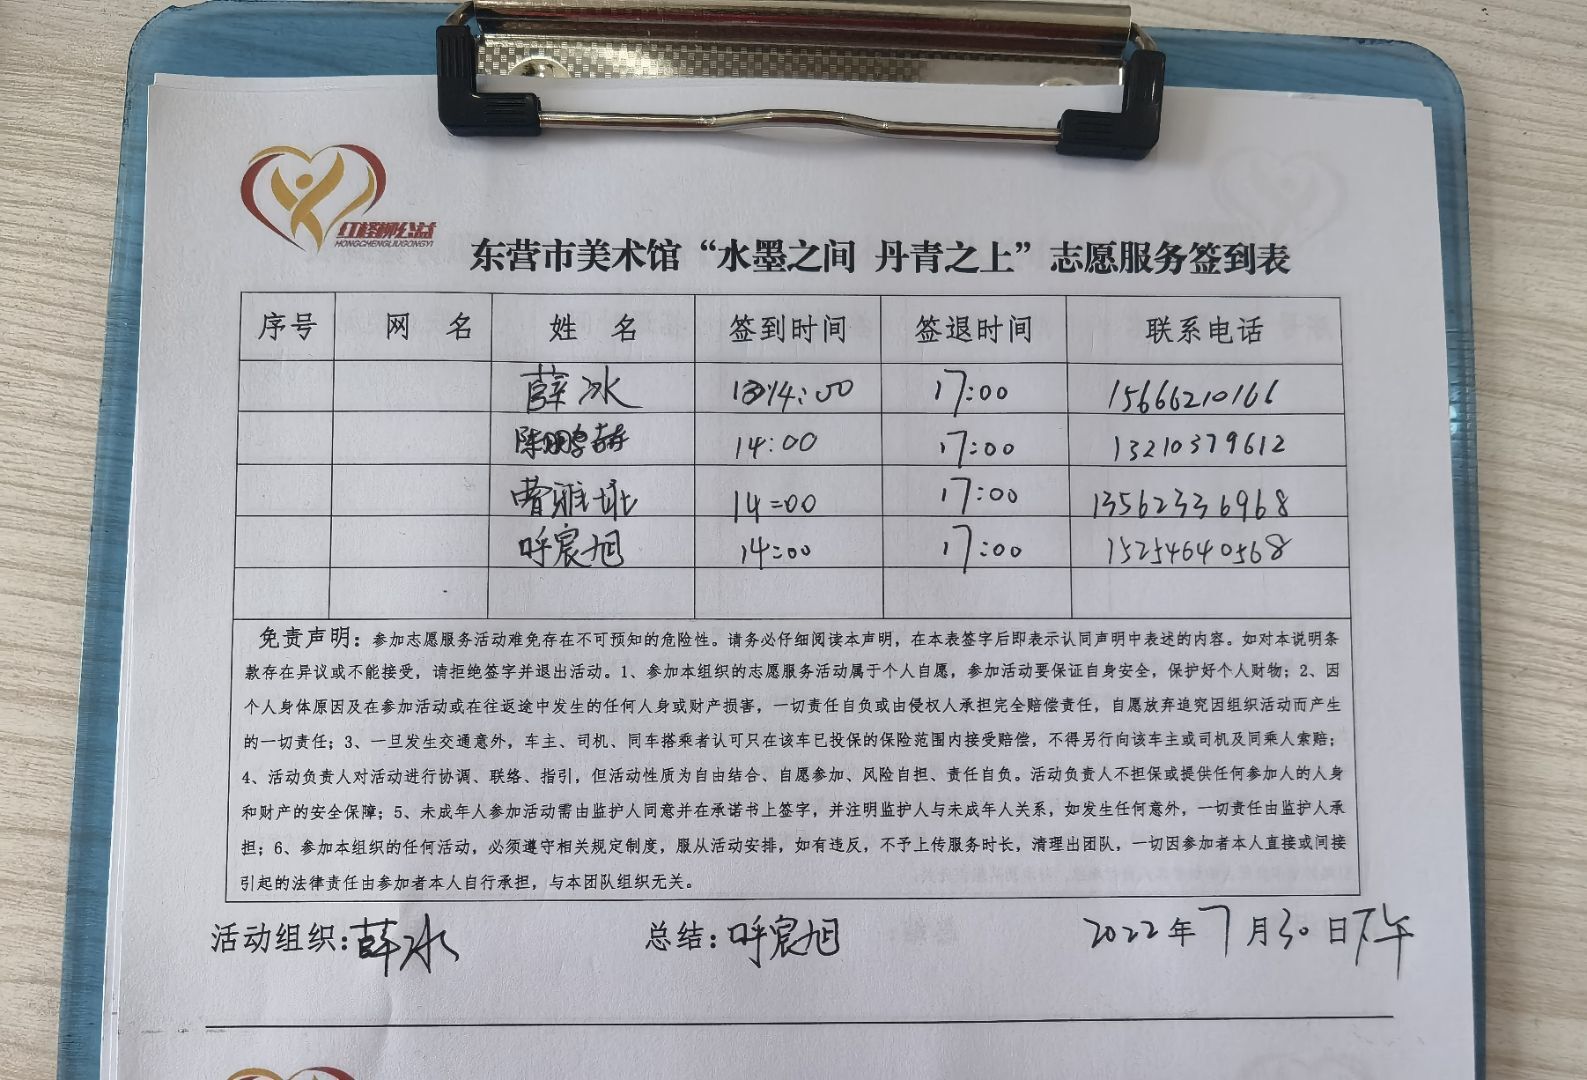 红柽柳公益
HONGCHENGLIUGONGYI
东营市美术馆“水墨之间 丹青之上”志愿服务签到表
序号 网 名 姓 名 签到时间 签退时间 联系电话
薛冰 14:00 17:00 15666210166
陈鹏赫 14:00 17:00 13210379612
曹雅址 14:00 17:00 13562336968
呼宸旭 14:00 17:00 15254640568
免责声明：参加志愿服务活动难免存在不可预知的危险性。请务必仔细阅读本声明，在本表签字后即表示认同声明中表述的内容。如对本说明条
款存在异议或不能接受，请拒绝签字并退出活动。1、参加本组织的志愿服务活动属于个人自愿，参加活动要保证自身安全，保护好个人财物；2、因
个人身体原因及在参加活动或在往返途中发生的任何人身或财产损害，一切责任自负或由侵权人承担完全赔偿责任，自愿放弃追究因组织活动而产生
的一切责任；3、一旦发生交通意外，车主、司机、同车搭乘者认可只在该车已投保的保险范围内接受赔偿，不得另行向该车主或司机及同乘人索赔；
4、活动负责人对活动进行协调、联络、指引，但活动性质为自由结合、自愿参加、风险自担、责任自负。活动负责人不担保或提供任何参加人的人身
和财产的安全保障；5、未成年人参加活动需由监护人同意并在承诺书上签字，并注明监护人与未成年人关系，如发生任何意外，一切责任由监护人承
担；6、参加本组织的任何活动，必须遵守相关规定制度，服从活动安排，如有违反，不予上传服务时长，清理出团队，一切因参加者本人直接或间接
引起的法律责任由参加者本人自行承担，与本团队组织无关。
活动组织：薛冰 总结：呼宸旭 2022年7月30日下午